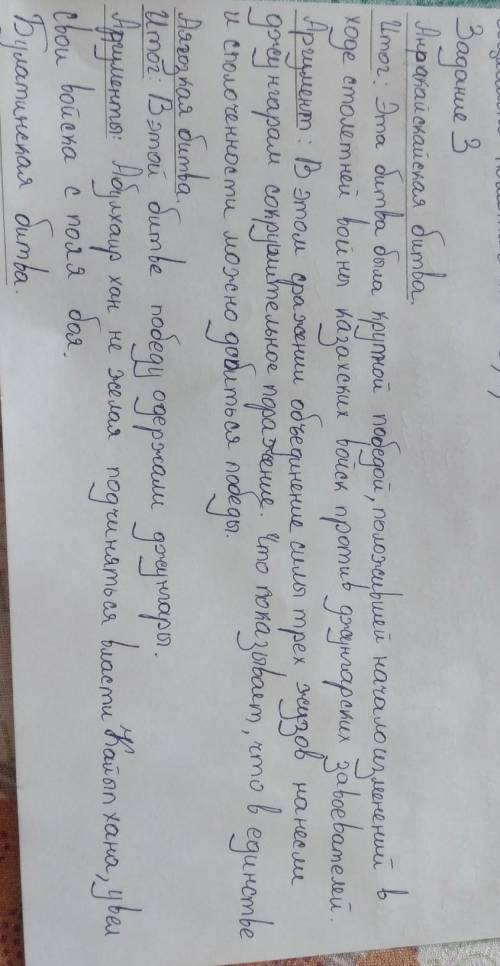 Задание 3
Анракайскайская битва.
Итог: Эта битва была крупной победой, положившей начало изменений в
ходе столетней войны казахских войск против джунгарских завоевателей.
Аргумент: В этом сражении объединение силы трех жузов нанесли
джунгарам сокрушительное поражение. Что показывает, что в единстве
и сплоченности можно добиться победы.
Аягозкая битва.
Итог: В этой битве победу одержали джунгары.
Аргументы: Абулхаир хан не желая подчиняться власти Кайып хана, увел
свои войска с поля боя.
Булатинская битва.